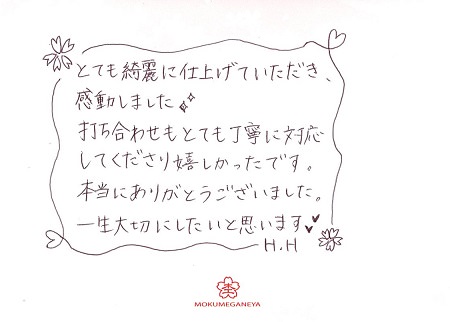 とても綺麗に仕上げていただき、
感動しました
打ち合わせもとても丁寧に対応
してくださり嬉しかったです。
本当にありがとうございました。
一生大切にしたいと思います
H.H
杢
MOKUMEGANEYA